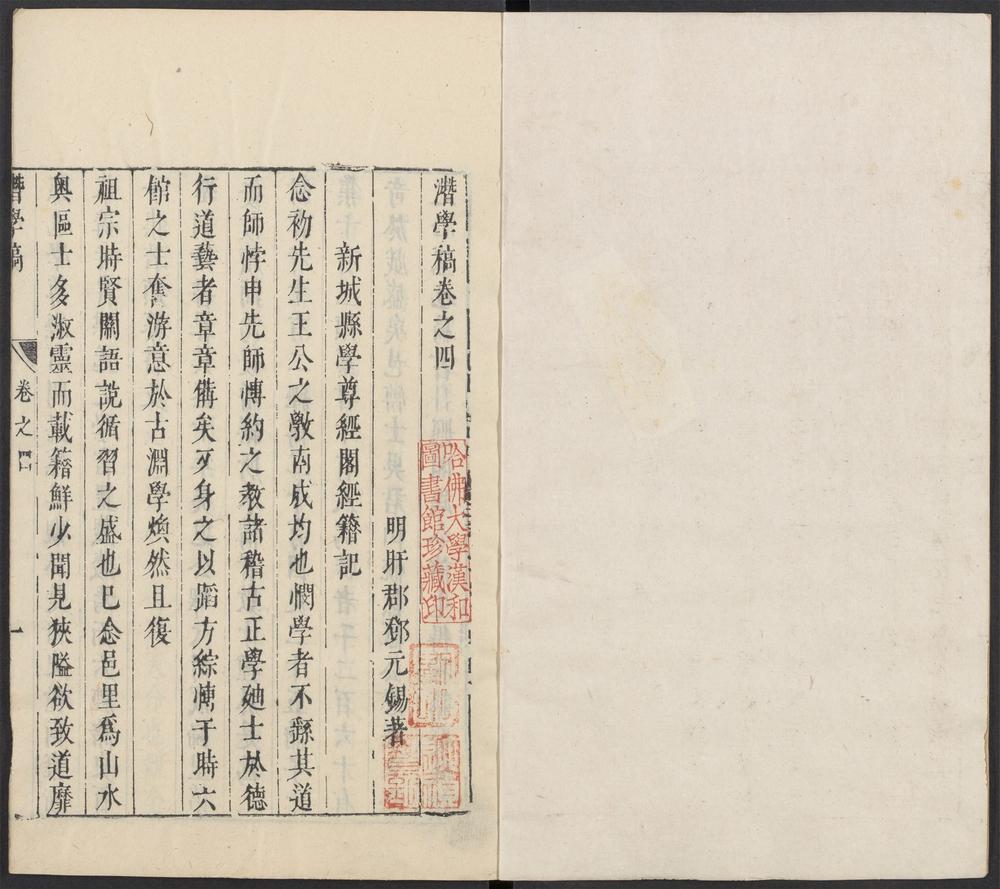 濳學稿卷之四
明盱郡鄧元錫著
新城縣學尊經閣經籍記
念初先生王公之敎南成均也憫學者不繇其道
而師悖申先師博約之教諸稽古正學廸士於德
行道藝者章章備矣又身之以蹈方綜博于時六
館之士奮游意於古淵學煥然且復
祖宗時賢關語說循習之盛也已念邑里爲山水
奥區士多淑靈而載籍鮮少聞見狹隘欲致道靡
濳學稿
卷之四
一
哈佛大學漢和
圖書館珍藏印